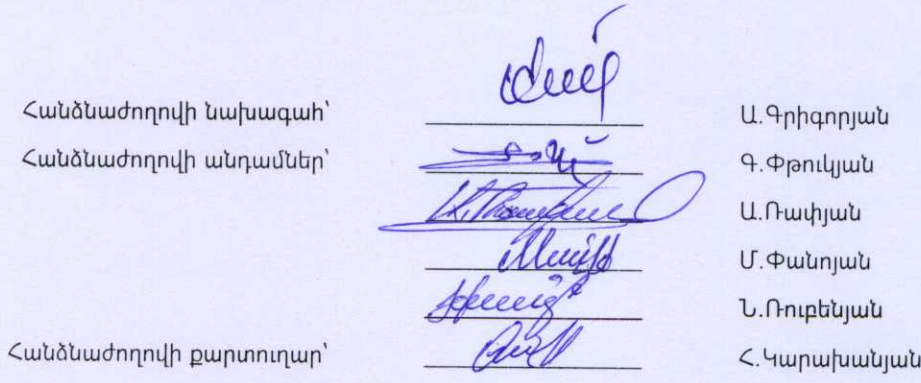 Հանձնաժողովի նախագահ՝ Ա.Գրիգորյան
Հանձնաժողովի անդամներ՝ Գ.Փթուկյան
Ա.Րափյան
Մ.Փանոյան
Ն.Ռուբենյան
Հանձնաժողովի քարտուղար՝ Հ.Կարախանյան